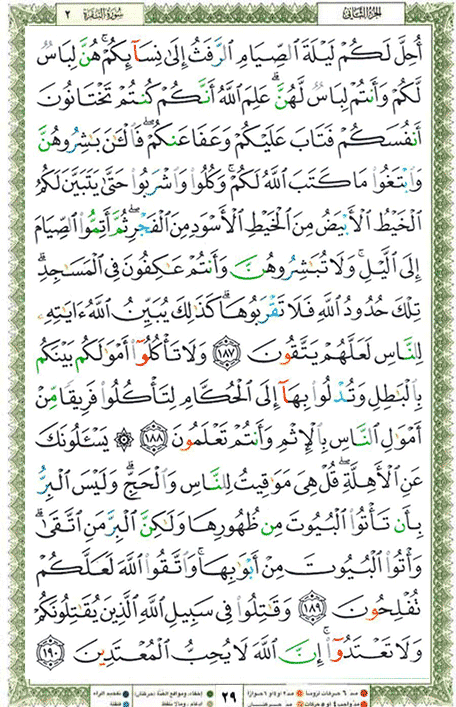 الجزء الثاني
سورة البقرة ٢
أُحِلَّ لَكُمْ لَيْلَةَ ٱلصِّيَامِ ٱلرَّفَثُ إِلَىٰ نِسَآئِكُمْ ۚ هُنَّ لِبَاسٌ
لَّكُمْ وَأَنتُمْ لِبَاسٌ لَّهُنَّ ۗ عَلِمَ ٱللَّهُ أَنَّكُمْ كُنتُمْ تَخْتَانُونَ
أَنفُسَكُمْ فَتَابَ عَلَيْكُمْ وَعَفَا عَنكُمْ ۖ فَٱلْـَٰٔنَ بَـٰشِرُوهُنَّ
وَٱبْتَغُوا۟ مَا كَتَبَ ٱللَّهُ لَكُمْ ۚ وَكُلُوا۟ وَٱشْرَبُوا۟ حَتَّىٰ يَتَبَيَّنَ لَكُمُ
ٱلْخَيْطُ ٱلْأَبْيَضُ مِنَ ٱلْخَيْطِ ٱلْأَسْوَدِ مِنَ ٱلْفَجْرِ ۖ ثُمَّ أَتِمُّوا۟ ٱلصِّيَامَ
إِلَى ٱلَّيْلِ ۚ وَلَا تُبَـٰشِرُوهُنَّ وَأَنتُمْ عَـٰكِفُونَ فِى ٱلْمَسَـٰجِدِ ۗ
تِلْكَ حُدُودُ ٱللَّهِ فَلَا تَقْرَبُوهَا ۗ كَذَٰلِكَ يُبَيِّنُ ٱللَّهُ ءَايَـٰتِهِۦ
لِلنَّاسِ لَعَلَّهُمْ يَتَّقُونَ ١٨٧ وَلَا تَأْكُلُوٓا۟ أَمْوَٰلَكُم بَيْنَكُم
بِٱلْبَـٰطِلِ وَتُدْلُوا۟ بِهَآ إِلَى ٱلْحُكَّامِ لِتَأْكُلُوا۟ فَرِيقًا مِّنْ
أَمْوَٰلِ ٱلنَّاسِ بِٱلْإِثْمِ وَأَنتُمْ تَعْلَمُونَ ١٨٨ ۞ يَسْـَٔلُونَكَ
عَنِ ٱلْأَهِلَّةِ ۖ قُلْ هِىَ مَوَٰقِيتُ لِلنَّاسِ وَٱلْحَجِّ ۗ وَلَيْسَ ٱلْبِرُّ
بِأَن تَأْتُوا۟ ٱلْبُيُوتَ مِن ظُهُورِهَا وَلَـٰكِنَّ ٱلْبِرَّ مَنِ ٱتَّقَىٰ ۗ
وَأْتُوا۟ ٱلْبُيُوتَ مِنْ أَبْوَٰبِهَا ۚ وَٱتَّقُوا۟ ٱللَّهَ لَعَلَّكُمْ
تُفْلِحُونَ ١٨٩ وَقَـٰتِلُوا۟ فِى سَبِيلِ ٱللَّهِ ٱلَّذِينَ يُقَـٰتِلُونَكُمْ
وَلَا تَعْتَدُوٓا۟ ۚ إِنَّ ٱللَّهَ لَا يُحِبُّ ٱلْمُعْتَدِينَ ١٩٠
٢٩